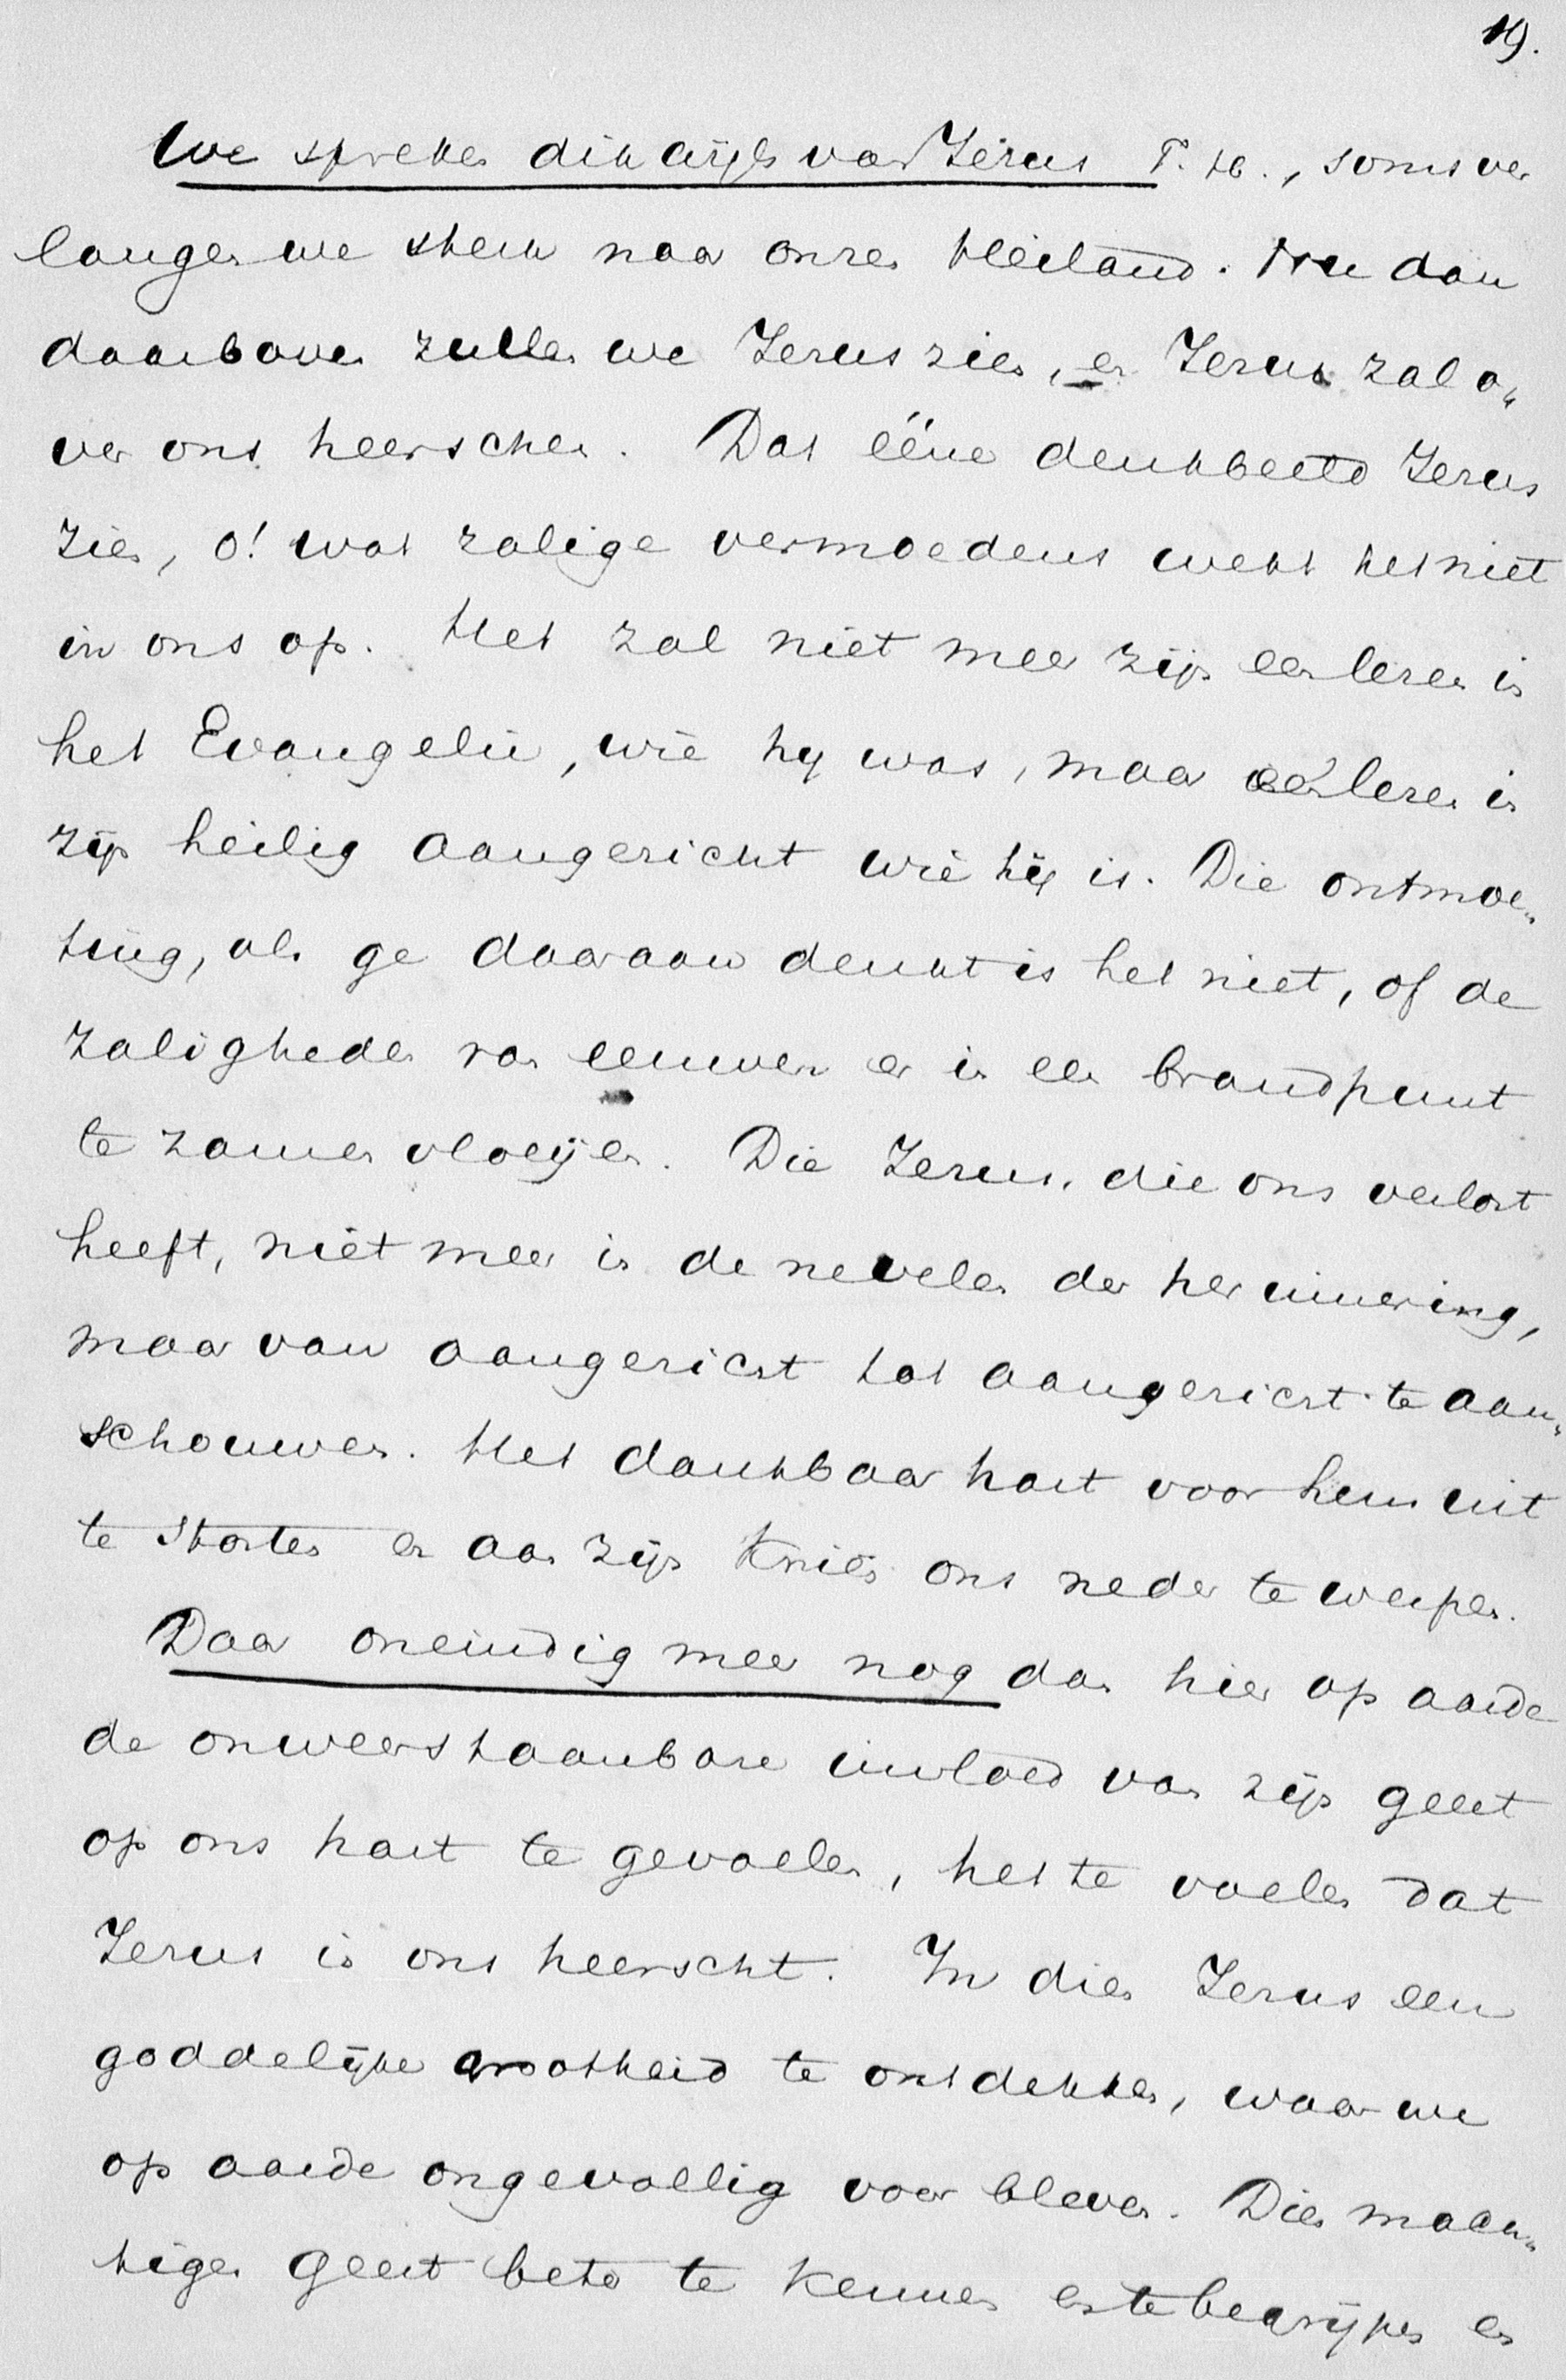 19.
We spreken dikwijls van Jezus T. H., soms ver
langen we sterk naar onzen Heiland. Nu dan
daarboven zullen we Jezus zien, en Jezus zal o„
ver ons heerschen. Dat ééne denkbeeld Jezus
zien, o! wat zalige vermoedens wekt het niet
in ons op. Het zal niet meer zijn een lezen in
het Evangelie, wie hij was, maar een lezen in
zijn heilig aangezicht wie hij is. Die ontmoe„
ting, als ge daaraan denkt is het niet, of de
zaligheden van eeuwen er in een brandpunt
te zamen vloeijen. Die Jezus, die ons verlost
heeft, niet meer in de nevelen der herinnering,
maar van aangezicht tot aangezicht te aan„
schouwen. Het dankbaar hart voor hem uit
te storten en aan zijn knieën ons neder te werpen.
Daar oneindig meer nog dan hier op aarde
de onweerstaanbare invloed van zijn geest
op ons hart te gevoelen, het te voelen dat
Jezus in ons heerscht. In dien Jezus een
goddelijke grootheid te ontdekken, waar we
op aarde ongevoellig voor bleven. Dien mach„
tigen geest beter te kennen en te begrijpen en